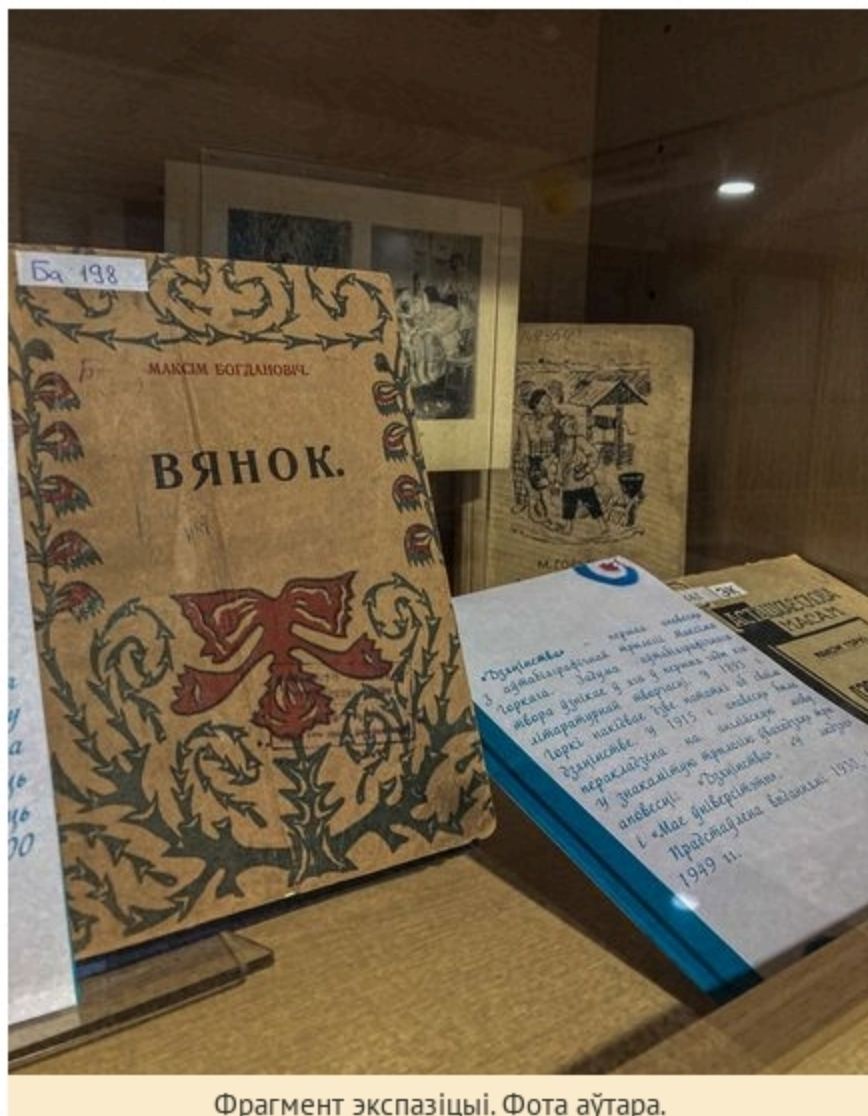 Ба 198
МАКСІМ БОГДАНОВІЧ.
ВЯНОК.
М. ГО
ЭК
МАСАМ
«Дзяцінства» – першая аповесць
з аўтабіяграфічнай трылогіі Максіма
Горкага. Задума аўтабіяграфічнага
твора ўзнікае ў яго ў першы
літаратурнай творчасці. У 1893 г.
Горкі накідвае дзве нататкі аб сваім
дзяцінстве. У 1915 г. аповесць была
перакладзена на англійскую мову.
У знакамітую трылогію ўваходзяць тры
аповесці: «Дзяцінства», «У людзях»
і «Мае ўніверсітэты».
Прадстаўлена выданнямі 1930,
1949 гг.
у
а
ць
ць
00
Фрагмент экспазіцыі. Фота аўтара.